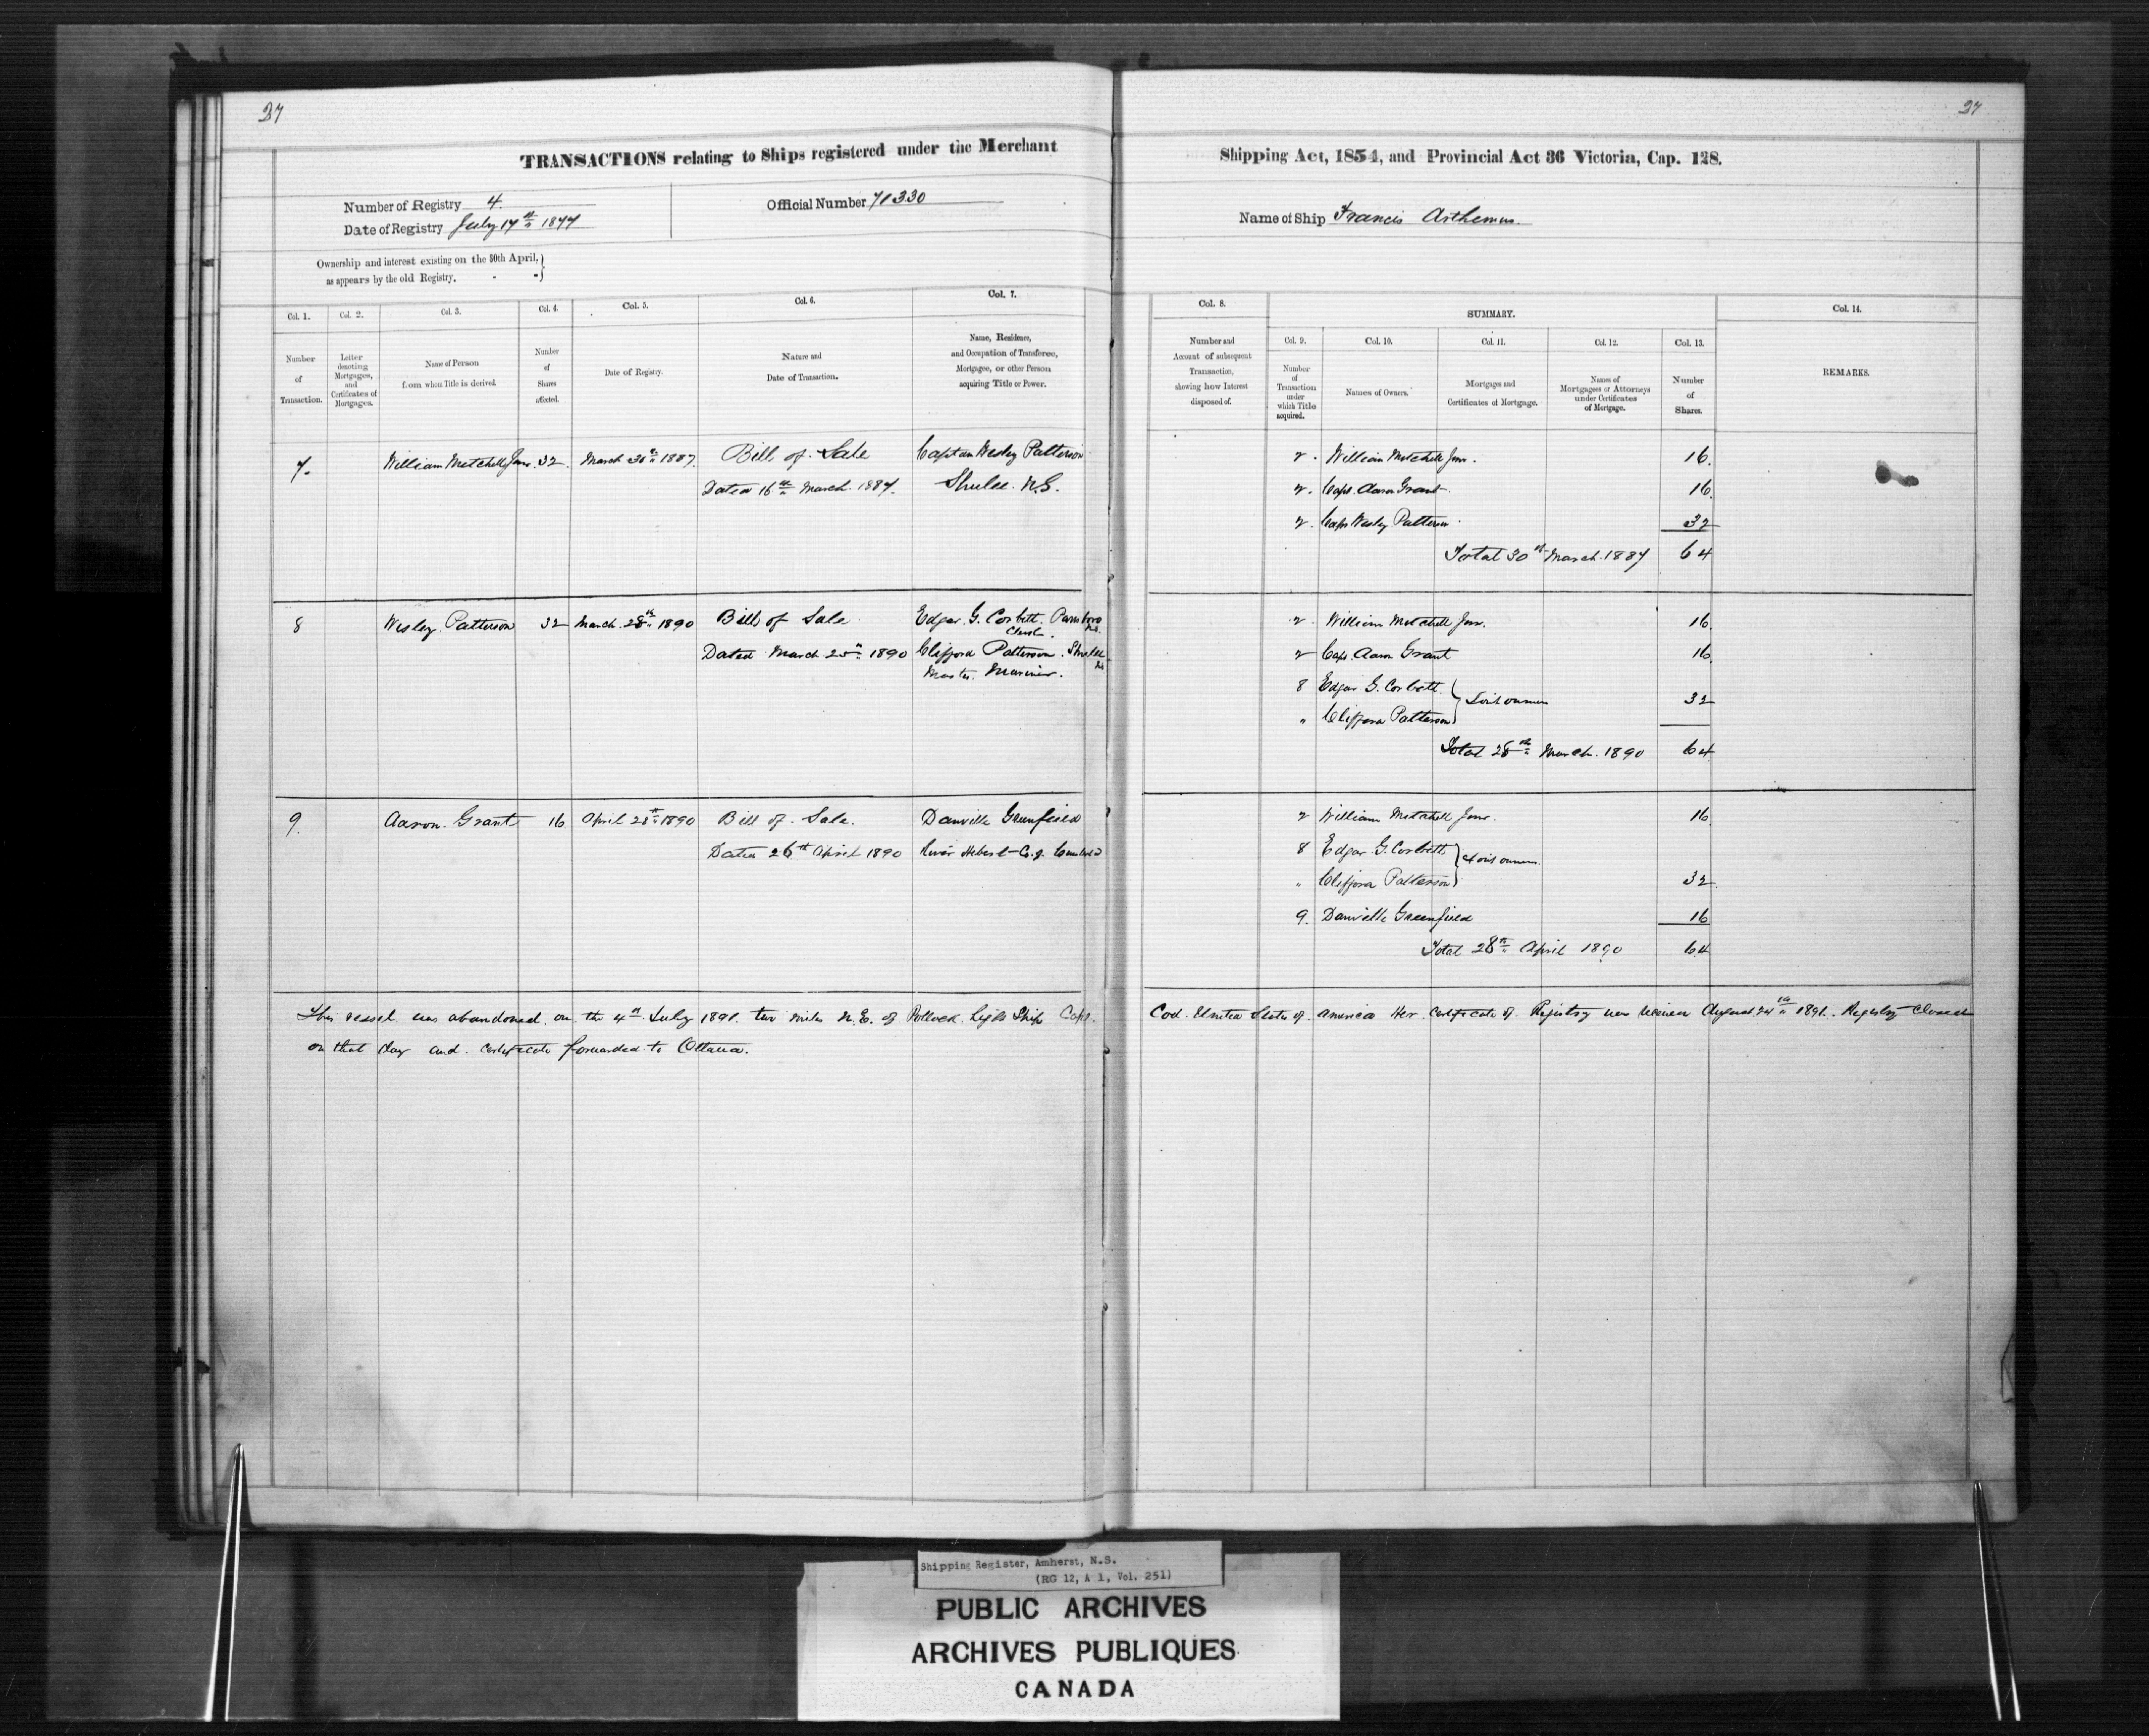 27
27
TRANSACTIONS relating to Ships registered under the Merchant
Shipping Act, 1854, and Provincial Act 36 Victoria, Cap. 128.
Number of Registry 4.
Date of Registry July 17th 1877
Official Number 71330
Name of Ship Francis Arthemus.
Ownership and interest existing on the 30th April,
as appears by the old Registry.
Col. 1.
Number
of
Transaction.
Col. 2.
Letter
denoting
Mortgages,
and
Certificates of
Mortgages.
Col. 3.
Name of Person
from whom Title is derived.
Col. 4.
Number
of
Shares
affected.
Col. 5.
Date of Registry.
Col. 6.
Nature and
Date of Transaction.
Col. 7.
Name, Residence,
and Occupation of Transferee,
Mortgagee, or other Person
acquiring Title or Power.
Col. 8.
Number and
Account of subsequent
Transaction,
showing how Interest
disposed of.
SUMMARY.
Col. 9.
Number
of
Transaction
under
which Title
acquired.
Col. 10.
Names of Owners.
Col. 11.
Mortgages and
Certificates of Mortgage.
Col. 12.
Names of
Mortgagees or Attorneys
under Certificates
of Mortgage.
Col. 13.
Number
of
Shares.
Col. 14.
REMARKS.
7. William Mitchell Junr. 32. March 30th 1887. Bill of Sale Captain Wesley Patterson
Dated 16th March. 1887. Shulee. N.S.
2. William Mitchell Junr. 16.
2. Capt. Aaron Grant. 16.
2. Capt Wesley Patterson. 32
Total 30th March. 1887 64
8 Wesley. Patterson 32 March. 28th 1890 Bill of Sale. Edgar. G. Corbett. Parrsboro N.S.
Clerk.
Dated March 25th 1890 Clifford Patterson. Shulee N.S.
Master. Mariner.
2. William Mitchell Junr. 16.
2 Capt. Aaron Grant 16.
8 Edgar. G. Corbett. Joint owners 32
" Clifford Patterson
Total 28th March. 1890 64.
9. Aaron. Grant 16. April 28th 1890 Bill of Sale. Danville Greenfield
Dated 26th April 1890 River Hebert Co. of Cumberland
2 William Mitchell Junr. 16.
8 Edgar G. Corbett Joint owners.
" Clifford Patterson 32.
9. Danville Greenfield 16
Total 28th April 1890 64
This vessel was abandoned on the 4th July 1891. two miles N.E. of Pollock Light Ship Cape. Cod. United States of America Her Certificate of Registry was received August 24th 1891. Registry Closed
on that day and certificate forwarded to Ottawa.
Shipping Register, Amherst, N.S.
(RG 12, A 1, Vol. 251)
PUBLIC ARCHIVES
ARCHIVES PUBLIQUES
CANADA